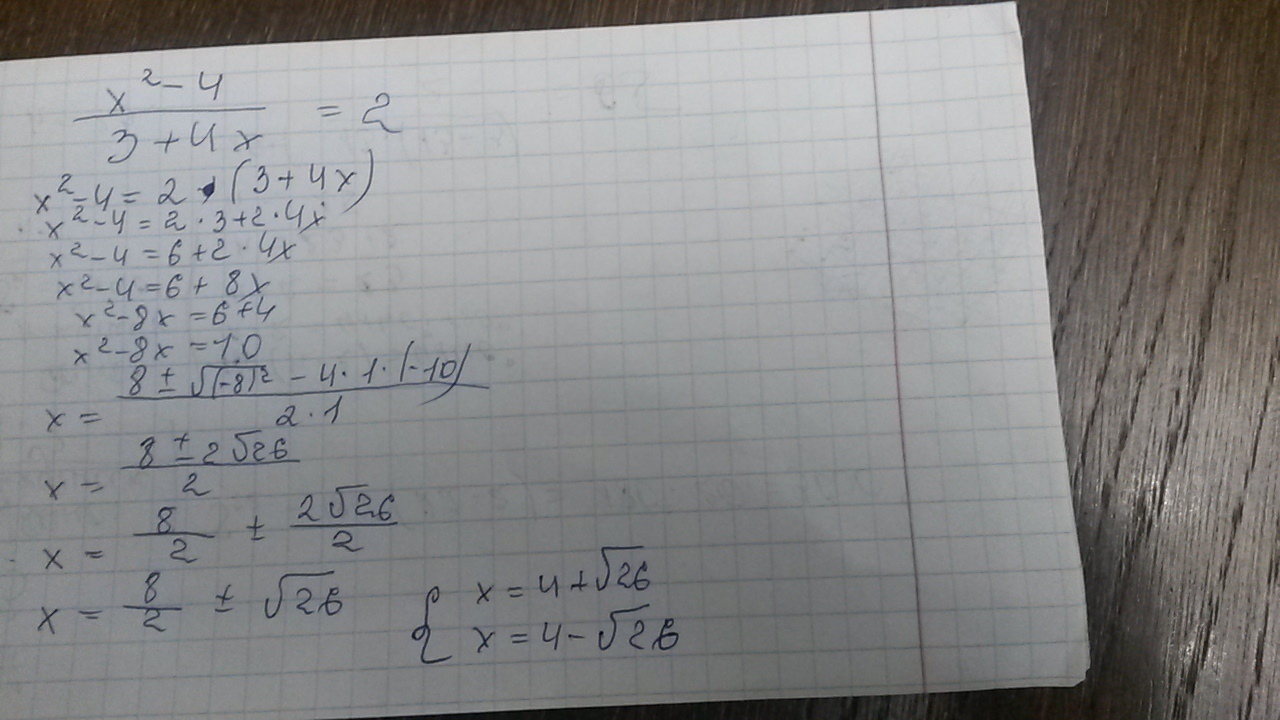 x² - 4 / 3 + 4x = 2
x² - 4 = 2 · (3 + 4x)
x² - 4 = 2 · 3 + 2 · 4x
x² - 4 = 6 + 2 · 4x
x² - 4 = 6 + 8x
x² - 8x = 6 + 4
x² - 8x = 10
x = 8 ± √(-8)² - 4 · 1 · (-10) / 2 · 1
x = 8 ± 2√26 / 2
x = 8/2 ± 2√26 / 2
x = 8/2 ± √26
{ x = 4 + √26
x = 4 - √26